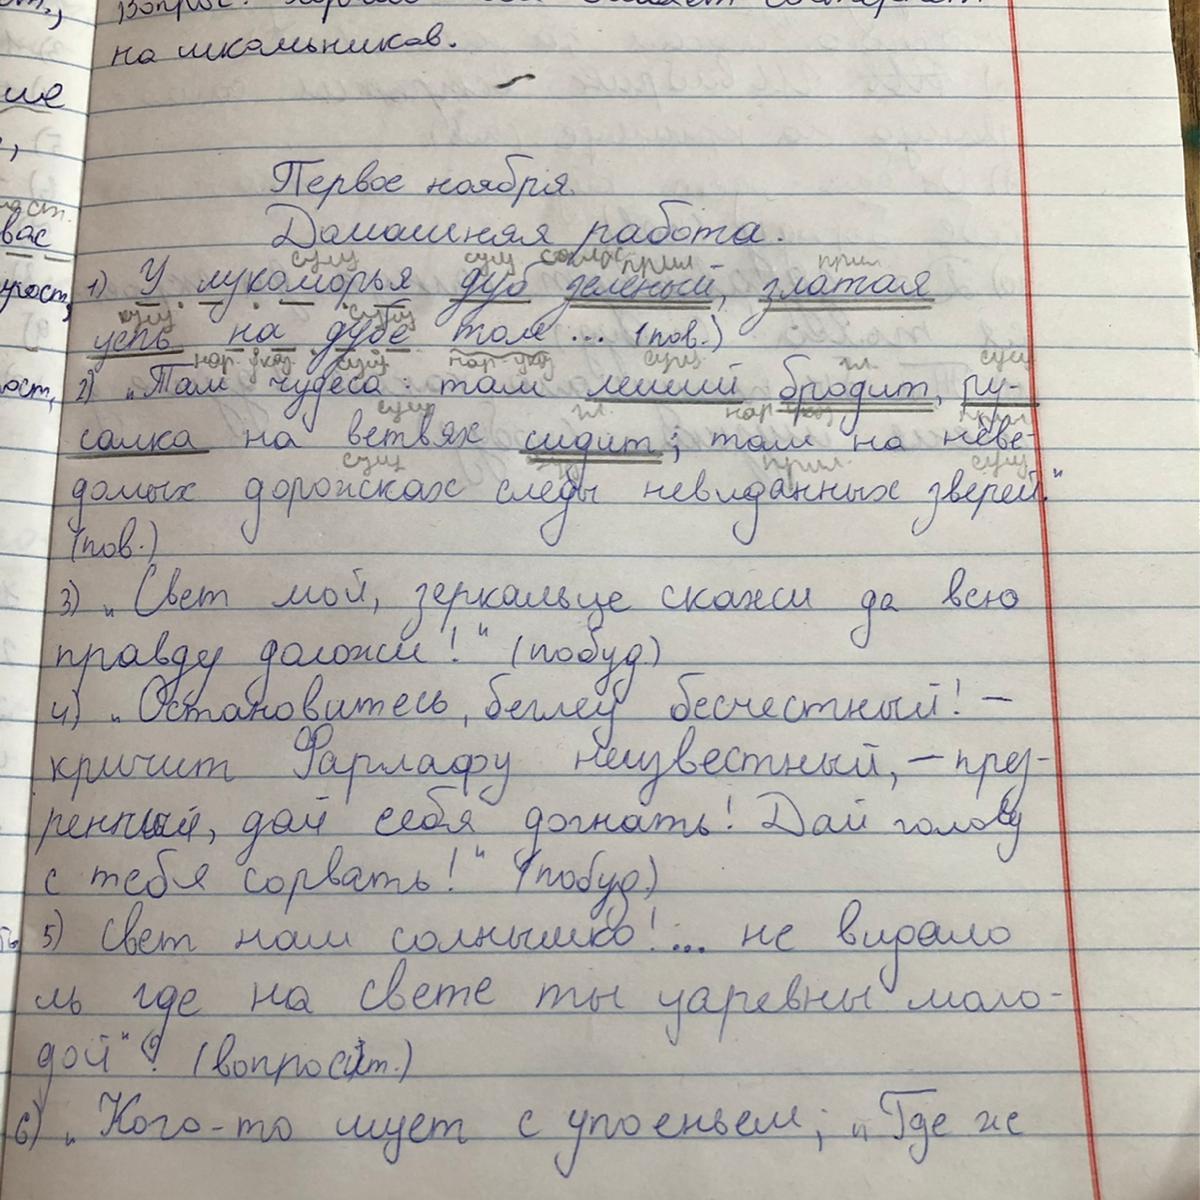 на школьников.
Первое ноября.
Домашняя работа.
сущ сущ прил прил
1) У лукоморья дуб зеленый, златая
сущ сущ
цепь на дубе том... (пов.)
нар. указ. сущ нар. указ сущ гл. сущ
2) „Там чудеса: там леший бродит, ру-
сущ гл. нар. указ прил
салка на ветвях сидит; там на неве-
сущ прил. сущ
домых дорожках следы невиданных зверей."
(пов.)
3) „Свет мой, зеркальце скажи да всю
правду доложи!" (побуд)
4) „Остановитесь, беглец бесчестный! –
кричит Фарлафу неизвестный, – през-
ренный, дай себя догнать! Дай голову
с тебя сорвать!" (побуд.)
5) Свет наш солнышко!... не видало
ль где на свете ты царевны моло-
дой"? (вопросит.)
6) „Кого-то ищет с упоеньем; „Где же